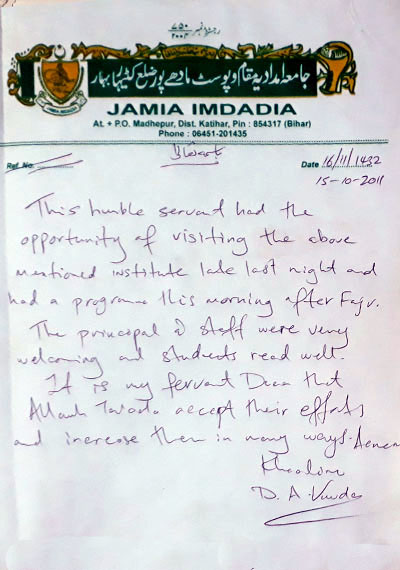 رجسٹریشن نمبر ۷۵۰/۲۰۰۳
جامعہ امدادیہ مقام و پوسٹ مادھے پور ضلع کٹیہار بہار
JAMIA IMDADIA
JAMIA IMDADIA
At. + P.O. Madhepur, Dist. Katihar, Pin : 854317 (Bihar)
Phone : 06451-201435
باسمہ تعالیٰ
Ref. No. Date 16/11/1432
15-10-2011
This humble servant had the
opportunity of visiting the above
mentioned institute late last night and
had a programme this morning after Fajr.
The principal & staff were very
welcoming and students read well.
It is my fervant Duaa that
Allaah Ta'aala accept their efforts
and increase them in many ways. Aameen
Khaadim
D. A.